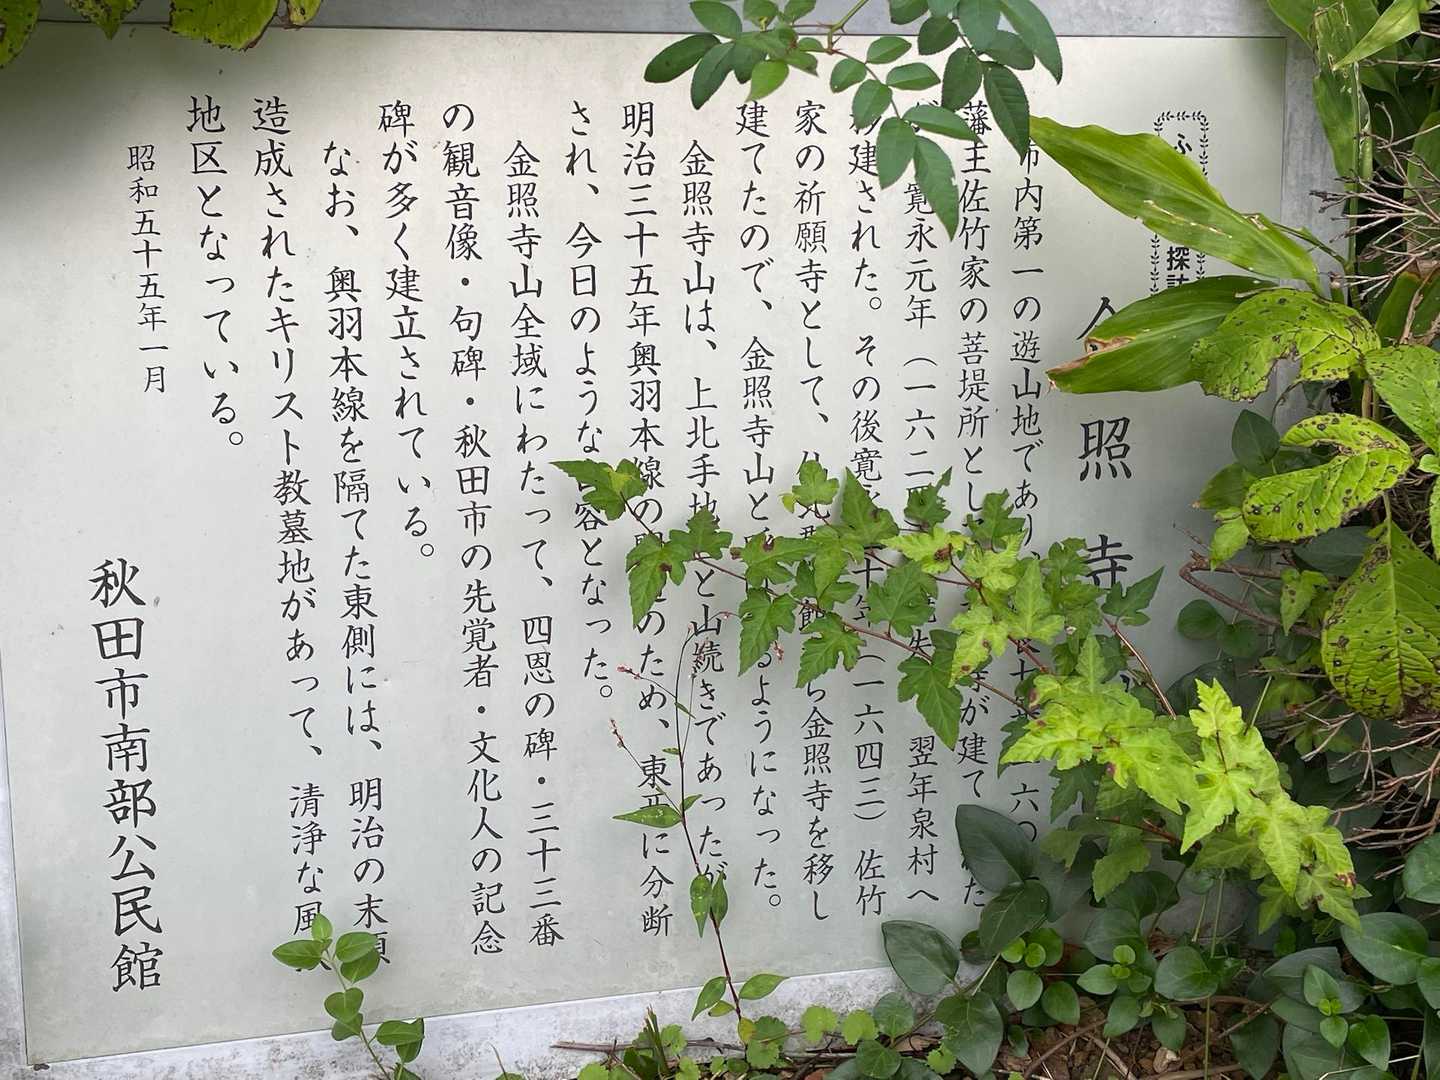 ふ
探訪
金照寺
市内第一の遊山地であり
藩主佐竹家の菩提所とし 等が建て た
寛永元年（一六二 失 翌年泉村へ
建された。その後寛永 十年（一六四三）佐竹
家の祈願寺として、 ら金照寺を移し
建てたので、金照寺山と るようになった。
金照寺山は、上北手地 と山続きであったが
明治三十五年奥羽本線の のため、東西に分断
され、今日のような 容となった。
金照寺山全域にわたって、四恩の碑・三十三番
の観音像・句碑・秋田市の先覚者・文化人の記念
碑が多く建立されている。
なお、奥羽本線を隔てた東側には、明治の末頃
造成されたキリスト教墓地があって、清浄な風
地区となっている。
昭和五十五年一月
秋田市南部公民館